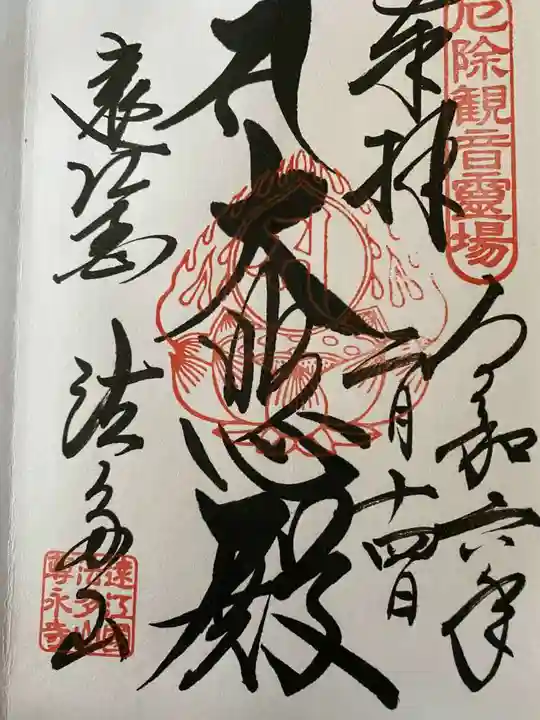 厄除観音霊場
奉拝
令和六年
二月十四日
大悲殿
遠江国
法多山
遠江国
法多山
尊永寺